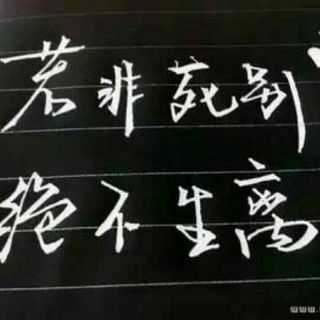 若非死别
绝不生离
www.